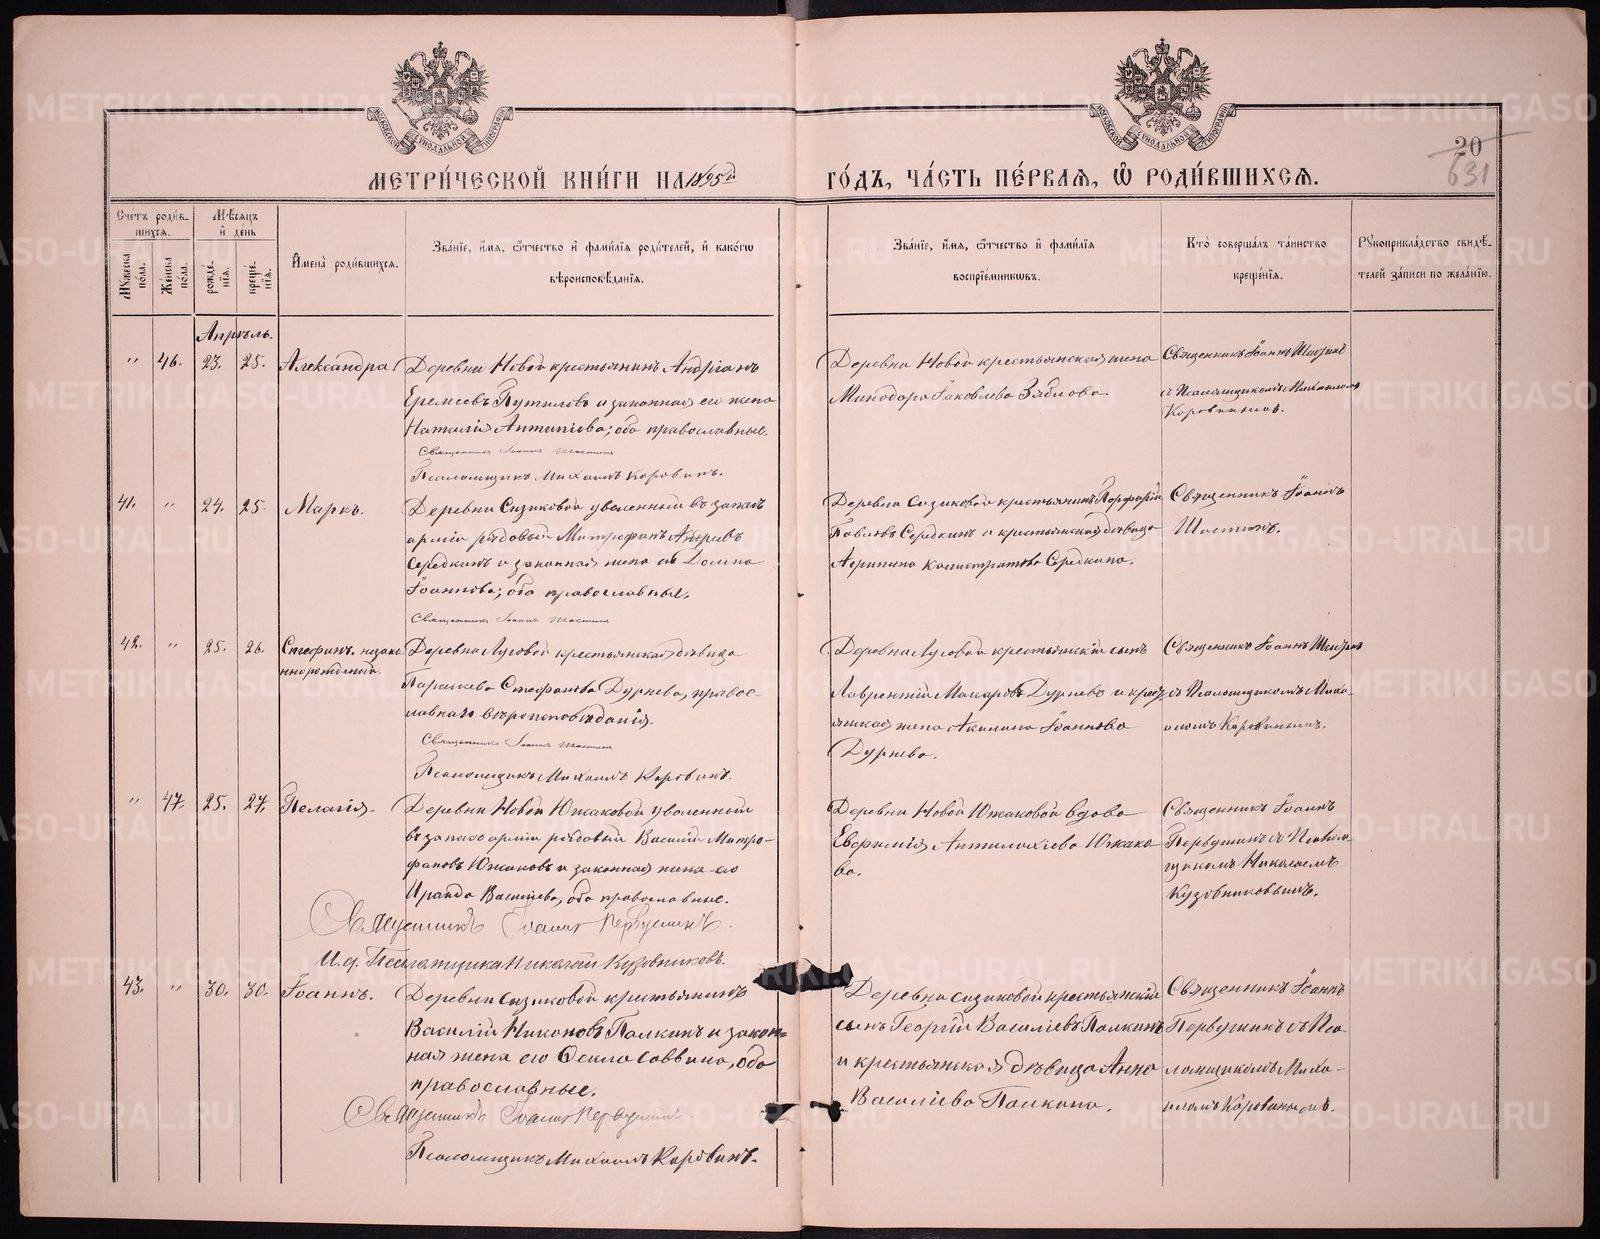 МОСКОВСКОЙ СѴНОДАЛЬНОЙ ТИПОГРАФІИ
МОСКОВСКОЙ СѴНОДАЛЬНОЙ ТИПОГРАФІИ
20
631
МЕТРИ́ЧЕСКОЙ КНИ́ГИ НА 1895й
ГО́ДЪ, ЧА́СТЬ ПЕ́РВАЯ, Ѡ РОДИ́ВШИХСЯ.
Сче́тъ роди́вшихся.
Мѣ́сяцъ и де́нь
Мꙋ́жеска по́ла.
Же́нска по́ла.
рожде́нїя.
креще́нїя.
И҆мена̀ роди́вшихся.
Зва́нїе, и҆́мя, ѻ҆́тчество и҆ фами́лїя роди́телей, и҆ како́гѡ вѣроисповѣ́данїя.
Зва́нїе, и҆́мя, ѻ҆́тчество и҆ фами́лїя воспрїе́мникѡвъ.
Кто̀ соверша́лъ та́инство креще́нїя.
Рꙋкоприкла́дство свидѣ́телей за́писи по жела́нїю.
Апрѣль.
" 46. 23. 25. Александра
Деревни Новой крестьянинъ Андріанъ
Еремеевъ Путиловъ и законная его жена
Наталія Антипіева; оба православные.
Священникъ Іоаннъ
Псаломщикъ Михаилъ Коровинъ.
Деревни Новой крестьянская жена
Минодора Іаковлева Зяблова.
Священникъ Іоаннъ
съ Псаломщикомъ Михаиломъ
Коровинымъ.
41. " 24. 25. Маркъ.
Деревни Сизиковой уволенный въ запасъ
арміи рядовый Митрофанъ Андреевъ
Середкинъ и законная жена его Домна
Іоаннова; оба православные.
Священникъ Іоаннъ
Деревни Сизиковой крестьянинъ Порфирій
Павловъ Середкинъ и крестьянская дѣвица
Агрипина Калистратова Середкина.
Священникъ Іоаннъ
42. " 25. 26. Стефанъ. незаконнорожденный.
Деревни Луговой крестьянская дѣвица
Параскева Стефанова Дурнева, православнаго вѣроисповѣданія.
Священникъ Іоаннъ
Псаломщикъ Михаилъ Коровинъ.
Деревни Луговой крестьянскій сынъ
Лаврентій Макаровъ Дурневъ и крестьянская жена Акилина Іоаннова
Дурнева.
Священникъ Іоаннъ
съ Псаломщикомъ Михаиломъ Коровинымъ.
" 47. 25. 27. Пелагія.
Деревни Новой Южаковой уволенный
въ запасъ арміи рядовый Василій Митрофановъ Южаковъ и законная жена его
Ираида Васильева, оба православные.
Священникъ Іоаннъ Первушинъ.
И. д. Псаломщика Николай Кузовниковъ.
Деревни Новой Южаковой вдова
Евфимія Антилохіева Южакова.
Священникъ Іоаннъ
Первушинъ съ Псаломщикомъ Николаемъ
Кузовниковымъ.
43. " 30. 30. Іоаннъ.
Деревни Сизиковой крестьянинъ
Василій Никоновъ Палкинъ и законная жена его Ѳекла Саввина, оба
православные.
Священникъ Іоаннъ Первушинъ
Псаломщикъ Михаилъ Коровинъ.
Деревни Сизиковой крестьянскій
сынъ Георгій Васильевъ Палкинъ
и крестьянская дѣвица Анна
Васильева Палкина.
Священникъ Іоаннъ
Первушинъ съ Псаломщикомъ Михаиломъ Коровинымъ.
METRIKI.GASO-URAL.RU